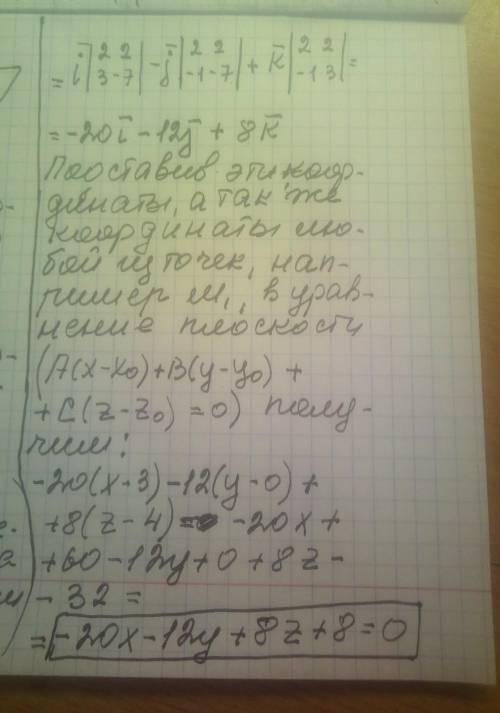 = i̅ |2 2| - j̅ |2 2| + k̅ |2 2| =
|3 -7| |-1 -7| |-1 3|
= -20i̅ - 12j̅ + 8k̅
Подставив эти коор-
динаты, а так же
координаты лю-
бой из точек, нап-
ример M₁, в урав-
нение плоскости
(A(x-x₀)+B(y-y₀) +
+ C(z-z₀) = 0) полу-
чим:
-20(x-3)-12(y-0) +
+8(z-4) = -20x +
+60-12y+0+8z-
-32 =
= -20x-12y+8z+8=0